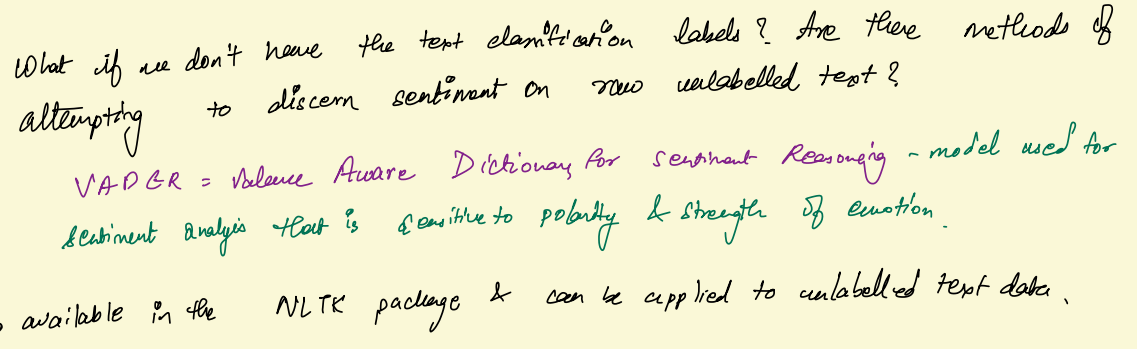 What if we don't have the text classification labels? Are there methods of
attempting to discern sentiment on raw unlabelled text?
VADER = Valence Aware Dictionary for sentiment Reasoning - model used for
sentiment analysis that is sensitive to polarity & strength of emotion.
available in the NLTK package & can be applied to unlabelled text data.